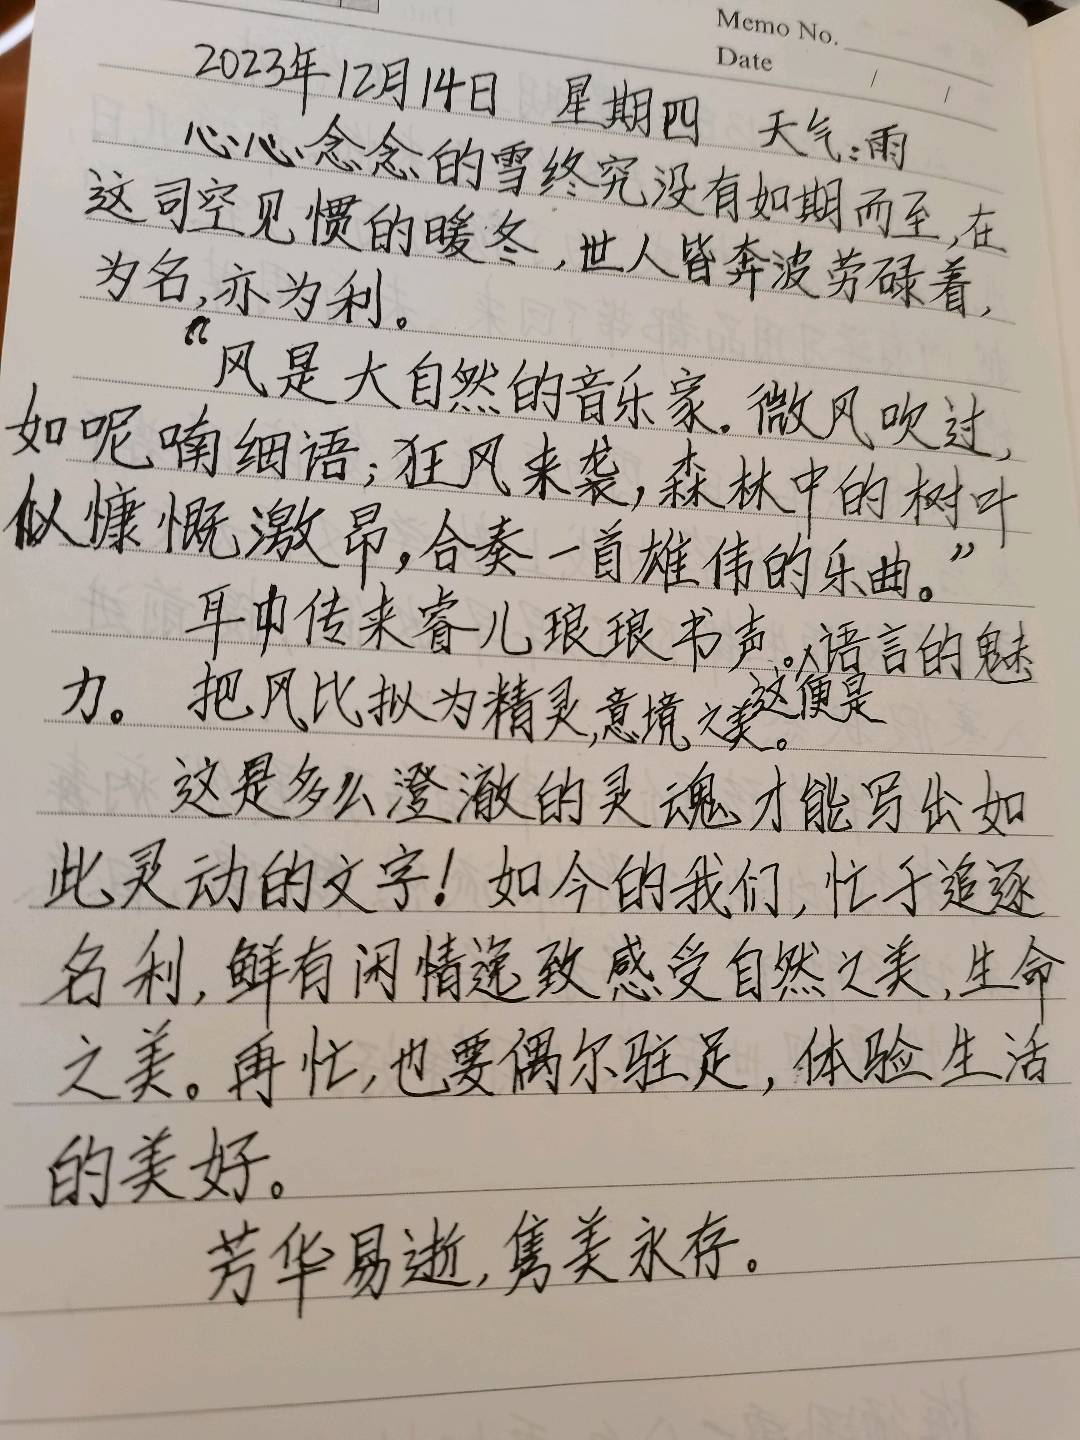 Memo No.
Date / /
2023年12月14日 星期四 天气:雨
心心念念的雪终究没有如期而至,在
这司空见惯的暖冬,世人皆奔波劳碌着,
为名,亦为利。
“风是大自然的音乐家。微风吹过,
如呢喃细语;狂风来袭,森林中的树叶
似慷慨激昂,合奏一首雄伟的乐曲。”
耳中传来睿儿琅琅书声。这便是语言的魅
力。 把风比拟为精灵,意境之美。
这是多么澄澈的灵魂才能写出如
此灵动的文字!如今的我们,忙于追逐
名利,鲜有闲情逸致感受自然之美,生命
之美。再忙,也要偶尔驻足,体验生活
的美好。
芳华易逝,隽美永存。